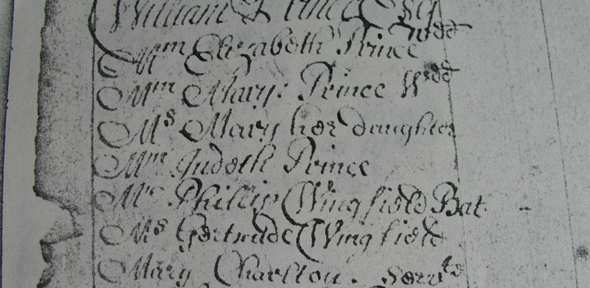 William Prince Esq
Mm Elizabeth Prince Wdd
Mm Mary: Prince Wdd
Ms Mary her daughter
Mm Judeth Prince
Mr Phillip Wingfield Bat.
Ms Gertrude Wingfield
Mary Charlton. Servts